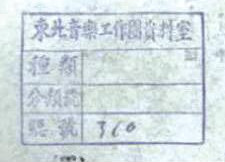 東北音樂工作團資料室
種類
分類號
總號 360